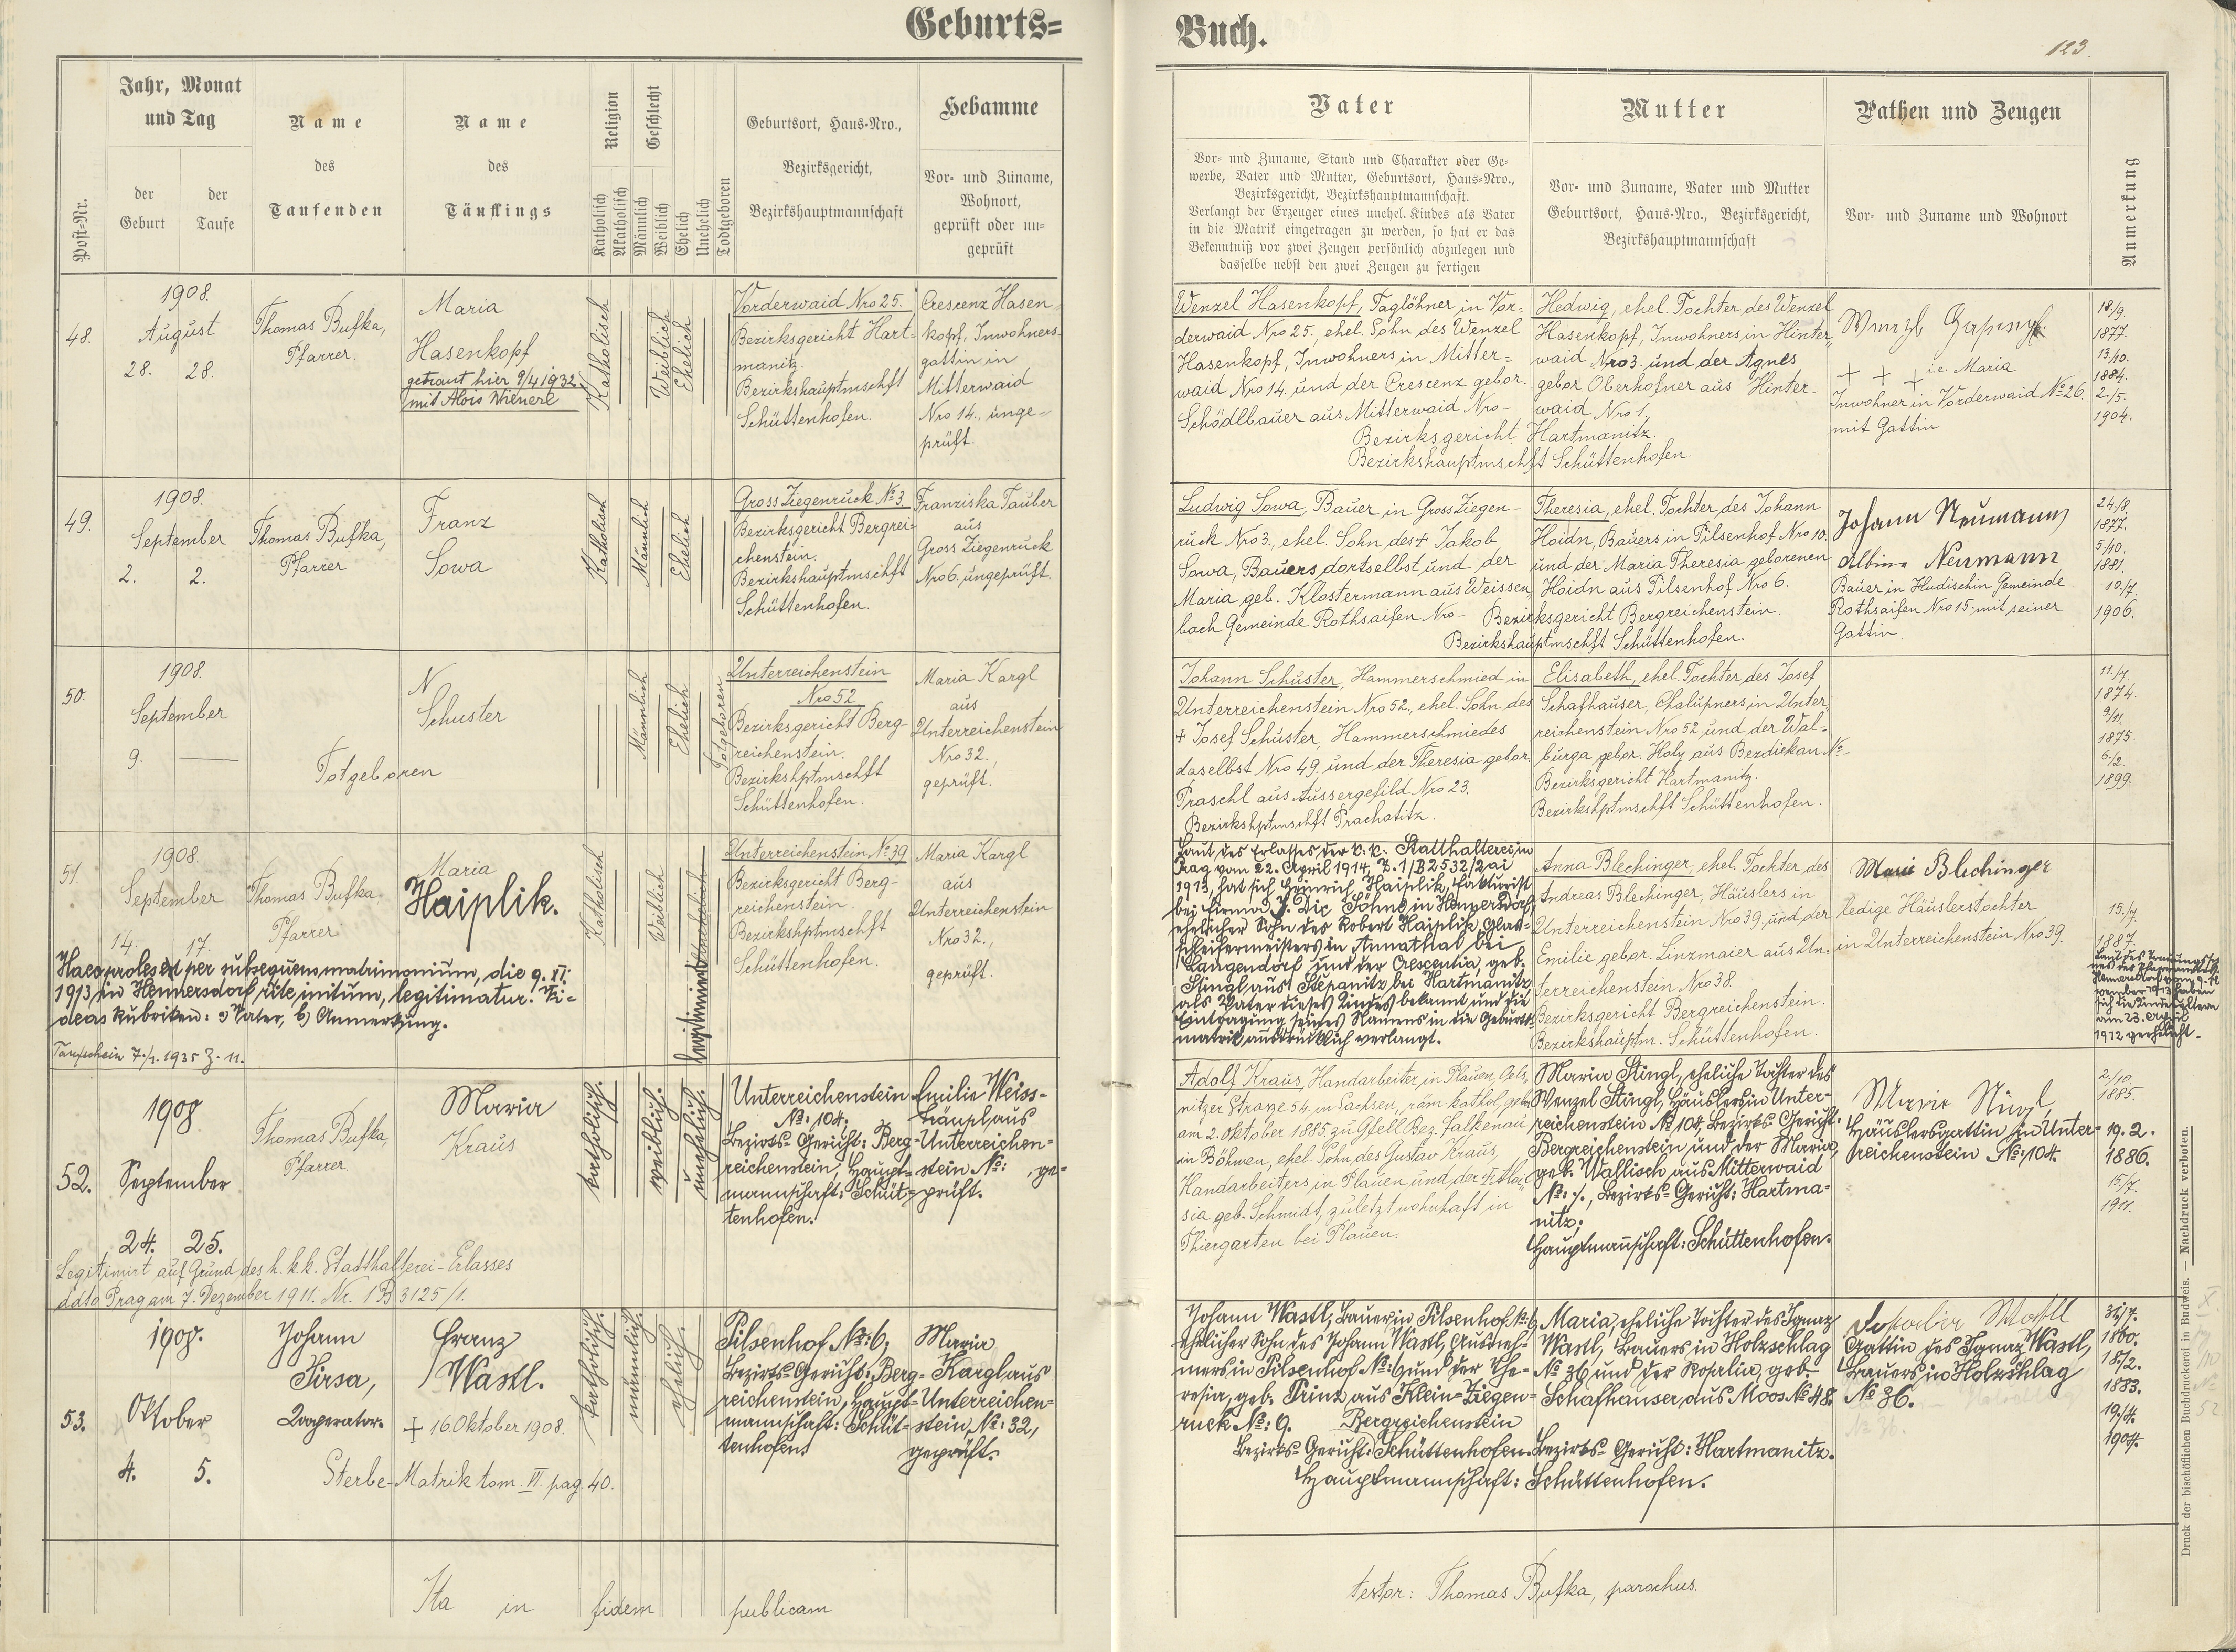 Geburts=
Jahr, Monat
und Tag
Post-Nr.
der
Geburt
der
Taufe
Name
des
Taufenden
Name
des
Täuflings
Religion
Katholisch
Akatholisch
Geschlecht
Männlich
Weiblich
Ehelich
Unehelich
Todtgeboren
Geburtsort, Haus-Nro.,
Bezirksgericht,
Bezirkshauptmannschaft
Hebamme
Vor- und Zuname,
Wohnort,
geprüft oder un=
geprüft
48.
1908.
August
28. 28.
Thomas Bufka,
Pfarrer.
Maria
Hasenkopf
getraut hier 9/4 1932
mit Alois Wienerl
Katholisch
Weiblich
Ehelich
Vorderwaid Nro 25.
Bezirksgericht Hart-
manitz.
Bezirkshauptmschft
Schüttenhofen.
Crescenz Hasen-
kopf, Inwohners-
gattin in
Mitterwaid
Nro 14., unge-
prüft.
49.
1908.
September
2. 2.
Thomas Bufka,
Pfarrer
Franz
Sowa
Katholisch
Männlich
Ehelich
Gross Ziegenruck No 3
Bezirksgericht Bergrei-
chenstein.
Bezirkshauptmschft
Schüttenhofen.
Franziska Tauber
aus
Gross Ziegenruck
Nro 6, ungeprüft.
50.
1908.
September
9.
Totgeboren
N
Schuster
Männlich
Ehelich
Totgeboren
Unterreichenstein
Nro 52
Bezirksgericht Berg-
reichenstein.
Bezirkshptmschft
Schüttenhofen.
Maria Kargl
aus
Unterreichenstein
Nro 32.,
geprüft.
51.
1908.
September
14. 17.
Thomas Bufka.
Pfarrer
Maria
Haiplik.
Katholisch
Weiblich
legitimiert
Unterreichenstein No 39
Bezirksgericht Berg-
reichenstein.
Bezirkshptmschft
Schüttenhofen.
Maria Kargl
aus
Unterreichenstein
Nro 32.,
geprüft.
Haec proles est per subsequens matrimonium, die 9. XI.
1913 in Hennersdorf rite initum, legitimatur. Vi-
deas Rubriken: a) Vater, b) Anmerkung.
Taufschein 7./1. 1935 Z. 11.
52.
1908
September
24. 25.
Thomas Bufka,
Pfarrer
Maria
Kraus
katholisch.
weiblich.
unehelich.
Unterreichenstein
No: 104.
Bezirks-Gericht: Berg-
reichenstein, Haupt-
mannschaft: Schüt-
tenhofen.
Emilie Weiss-
häupl aus
Unterreichen-
stein No: ge-
prüft.
Legitimirt auf Grund des h. k. k. Statthalterei-Erlasses
ddto Prag am 7. Dezember 1911. Nr. 1 B 3125/1.
53.
1908.
Oktober
4. 5.
Johann
Sirsa,
Kooperator.
Franz
Wastl.
+ 16. Oktober 1908.
Sterbe-Matrik tom. VI. pag. 40.
katholisch.
männlich.
ehelich.
Pilsenhof No: 6,
Bezirks-Gericht: Berg-
reichenstein, Haupt-
mannschaft: Schüt-
tenhofen.
Maria
Kargl aus
Unterreichen-
stein, No: 32,
geprüft.
Ita in fidem publicam
Buch.
123.
Vater
Vor- und Zuname, Stand und Charakter oder Ge-
werbe, Vater und Mutter, Geburtsort, Haus-Nro.,
Bezirksgericht, Bezirkshauptmannschaft.
Verlangt der Erzeuger eines unehel. Kindes als Vater
in die Matrik eingetragen zu werden, so hat er das
Bekenntniß vor zwei Zeugen persönlich abzulegen und
dasselbe nebst den zwei Zeugen zu fertigen
Mutter
Vor- und Zuname, Vater und Mutter
Geburtsort, Haus-Nro., Bezirksgericht,
Bezirkshauptmannschaft
Pathen und Zeugen
Vor- und Zuname und Wohnort
Anmerkung
Wenzel Hasenkopf, Taglöhner in Vor-
derwaid Nro 25., ehel. Sohn des Wenzel
Hasenkopf, Inwohners in Mitter=
waid Nro 14. und der Crescenz gebor.
Schödlbauer aus Mitterwaid Nro -
Hedwig, ehel. Tochter des Wenzel
Hasenkopf, Inwohners in Hinter-
waid Nro 3. und der Agnes
gebor Oberhofner aus Hinter-
waid Nro 1,
Bezirksgericht Hartmanitz.
Bezirkshauptmschft Schüttenhofen.
+ + + i.e. Maria
Inwohner in Vorderwaid No 26.
mit Gattin
18/9.
1877.
13/10.
1884.
2./5.
1904.
Ludwig Sowa, Bauer in Gross Ziegen-
ruck Nro 3., ehel. Sohn des + Jakob
Sowa, Bauers dortselbst und der
Maria geb. Klostermann aus Weissen-
bach Gemeinde Rothsaifen Nro -
Theresia, ehel. Tochter des Johann
Hoidn, Bauers in Pilsenhof Nro 10.
und der Maria Theresia geborenen
Hoidn aus Pilsenhof Nro 6.
Bezirksgericht Bergreichenstein.
Bezirkshauptmschft Schüttenhofen.
Johann Neumann
Albine Neumann
Bauer in Hudischin Gemeinde
Rothsaifen Nro 15. mit seiner
Gattin.
24./8.
1877.
5/10.
1881.
10./7.
1906.
Johann Schuster, Hammerschmied in
Unterreichenstein Nro 52., ehel. Sohn des
+ Josef Schuster, Hammerschmiedes
daselbst Nro 49. und der Theresia gebor.
Praschl aus Aussergefild Nro 23.
Bezirkshptmschft Prachatitz.
Elisabeth, ehel. Tochter des Josef
Schafhauser, Chalupners in Unter-
reichenstein Nro 52 und der Wal-
burga gebor. Holy aus Bezdiekau No -
Bezirksgericht Hartmanitz.
Bezirkshptmschft Schüttenhofen.
11./7.
1874.
9/11.
1875.
6./2.
1899.
Laut des Erlasses der k. k. Statthalterei in
Prag vom 22. April 1914, Z. 1/B 2532/2 ai
1913, hat sich Heinrich Haiplik, Fakturist
bei Firma J. Dix Söhne in Hennersdorf,
ehelicher Sohn des Robert Haiplik, Glas-
schleifermeisters in Annathal bei
Langendorf und der Crescentia, geb.
Stingl aus Stepanitz bei Hartmanitz
als Vater dieses Kindes bekannt und die
Eintragung seines Namens in die Geburts-
matrik ausdrücklich verlangt.
Anna Blechinger, ehel. Tochter des
Andreas Blechinger, Häuslers in
Unterreichenstein Nro 39, und der
Emilie gebor. Linzmaier aus Un-
terreichenstein Nro 38.
Bezirksgericht Bergreichenstein.
Bezirkshauptm. Schüttenhofen.
Marie Blechinger
ledige Häuslerstochter
in Unterreichenstein Nro 39.
15./7.
1887.
Adolf Kraus, Handarbeiter, in Plauen, Oels-
nitzer Strasse 54. in Sachsen, röm. kathol., geb.
am 2. Oktober 1885. zu Gfell Bez. Falkenau
in Böhmen, ehel. Sohn des Gustav Kraus,
Handarbeiters in Plauen und der + Aloi-
sia geb. Schmidt, zuletzt wohnhaft in
Thiergarten bei Plauen.
Maria Stingl, eheliche Tochter des
Wenzel Stingl, Häuslers in Unter-
reichenstein No 104, Bezirks-Gericht:
Bergreichenstein und der Maria,
geb. Wallisch aus Mitterwaid
No: /., Bezirks-Gericht: Hartma-
nitz;
Hauptmannschaft: Schüttenhofen.
Marie Stingl,
Häuslersgattin in Unter-
reichenstein No: 104.
2./10
1885.
19. 2.
1886.
15./7.
1911.
Johann Wastl, Bauer in Pilsenhof No: 6,
ehelicher Sohn des Johann Wastl, Ausneh-
mers in Pilsenhof No: 6 und der The-
resia, geb. Prinz aus Klein-Ziegen-
ruck No: 9.
Bergreichenstein
Bezirks-Gericht: Schüttenhofen.
Maria, eheliche Tochter des Ignaz
Wastl, Bauers in Holzschlag
No 36 und der Rosalia, geb.
Schafhauser, aus Moos No 48.
Bezirks-Gericht: Hartmanitz.
Hauptmannschaft: Schüttenhofen.
Rosalia Wastl
Gattin des Ignaz Wastl,
Bauers in Holzschlag
No 36.
31/7.
1880.
18/2.
1883.
19/4.
1904.
testor: Thomas Bufka, parochus.
Druck der bischöflichen Buchdruckerei in Budweis. — Nachdruck verboten.